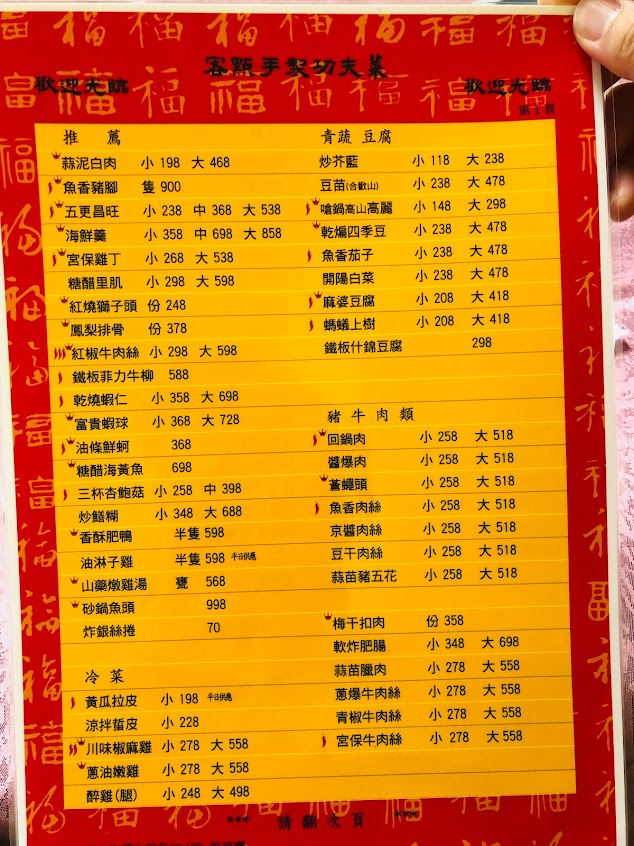 客點手製功夫菜
歡迎光臨
歡迎光臨
第1頁
推 薦
蒜泥白肉 小 198 大 468
魚香豬腳 隻 900
五更昌旺 小 238 中 368 大 538
海鮮羹 小 358 中 698 大 858
宮保雞丁 小 268 大 538
糖醋里肌 小 298 大 598
紅燒獅子頭 份 248
鳳梨排骨 份 378
紅椒牛肉絲 小 298 大 598
鐵板菲力牛柳 588
乾燒蝦仁 小 358 大 698
富貴蝦球 小 368 大 728
油條鮮蚵 368
糖醋海黃魚 698
三杯杏鮑菇 小 258 中 398
炒鱔糊 小 348 大 688
香酥肥鴨 半隻 598
油淋子雞 半隻 598 平日供應
山藥燉雞湯 甕 568
砂鍋魚頭 998
炸銀絲捲 70
冷 菜
黃瓜拉皮 小 198 平日供應
涼拌蜇皮 小 228
川味椒麻雞 小 278 大 558
蔥油嫩雞 小 278 大 558
醉雞(腿) 小 248 大 498
青蔬 豆腐
炒芥藍 小 118 大 238
豆苗(合歡山) 小 238 大 478
嗆鍋高山高麗 小 148 大 298
乾煸四季豆 小 238 大 478
魚香茄子 小 238 大 478
開陽白菜 小 238 大 478
麻婆豆腐 小 208 大 418
螞蟻上樹 小 208 大 418
鐵板什錦豆腐 298
豬 牛 肉 類
回鍋肉 小 258 大 518
醬爆肉 小 258 大 518
蒼蠅頭 小 258 大 518
魚香肉絲 小 258 大 518
京醬肉絲 小 258 大 518
豆干肉絲 小 258 大 518
蒜苗豬五花 小 258 大 518
梅干扣肉 份 358
軟炸肥腸 小 348 大 698
蒜苗臘肉 小 278 大 558
蔥爆牛肉絲 小 278 大 558
青椒牛肉絲 小 278 大 558
宮保牛肉絲 小 278 大 558
*** 請 翻 次 頁 ***